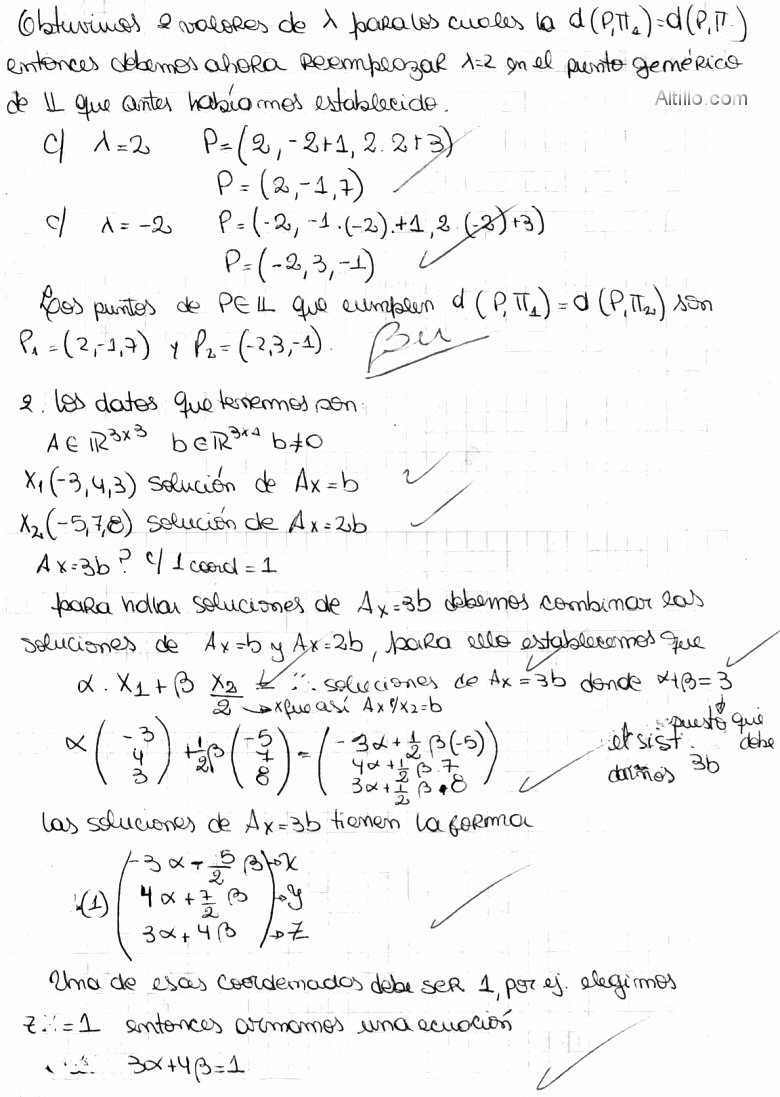 Obtuvimos 2 valores de λ para los cuales la d(P,Π₁)=d(P,Π
entonces debemos ahora reemplazar λ=2 en el punto genérico
de 𝕃 que antes habíamos establecido.
Altillo.com
c/ λ=2 P=(2,-2+1,2.2+3)
P=(2,-1,7)
c/ λ=-2 P=(-2,-1.(-2)+1,2.(-2)+3)
P=(-2,3,-1)
Los puntos de P∈𝕃 que cumplen d(P,Π₁)=d(P,Π₂) son
P₁=(2,-1,7) y P₂=(-2,3,-1).
2. los datos que tenemos son:
A∈ℝ³ˣ³ b∈ℝ³ˣ¹ b≠0
X₁(-3,4,3) solución de Ax=b
X₂(-5,7,8) solución de Ax=2b
Ax=3b? c/ 1 coord=1
para hallar soluciones de Ax=3b debemos combinar las
soluciones de Ax=b y Ax=2b, para ello establecemos que
α.X₁+β X₂/2 ∴ soluciones de Ax=3b donde α+β=3
→ xque así Ax°/x₂=b
puesto que
el sist. debe
darnos 3b
α(-3 4 3)+½β(-5 7 8)=(-3α+½β(-5) 4α+½β.7 3α+½β.8)
las soluciones de Ax=3b tienen la forma
(1) (-3α-5/2 β)→x
4α+7/2 β →y
3α+4β →z
Una de esas coordenadas debe ser 1, por ej. elegimos
z=1 entonces armamos una ecuación
3α+4β=1